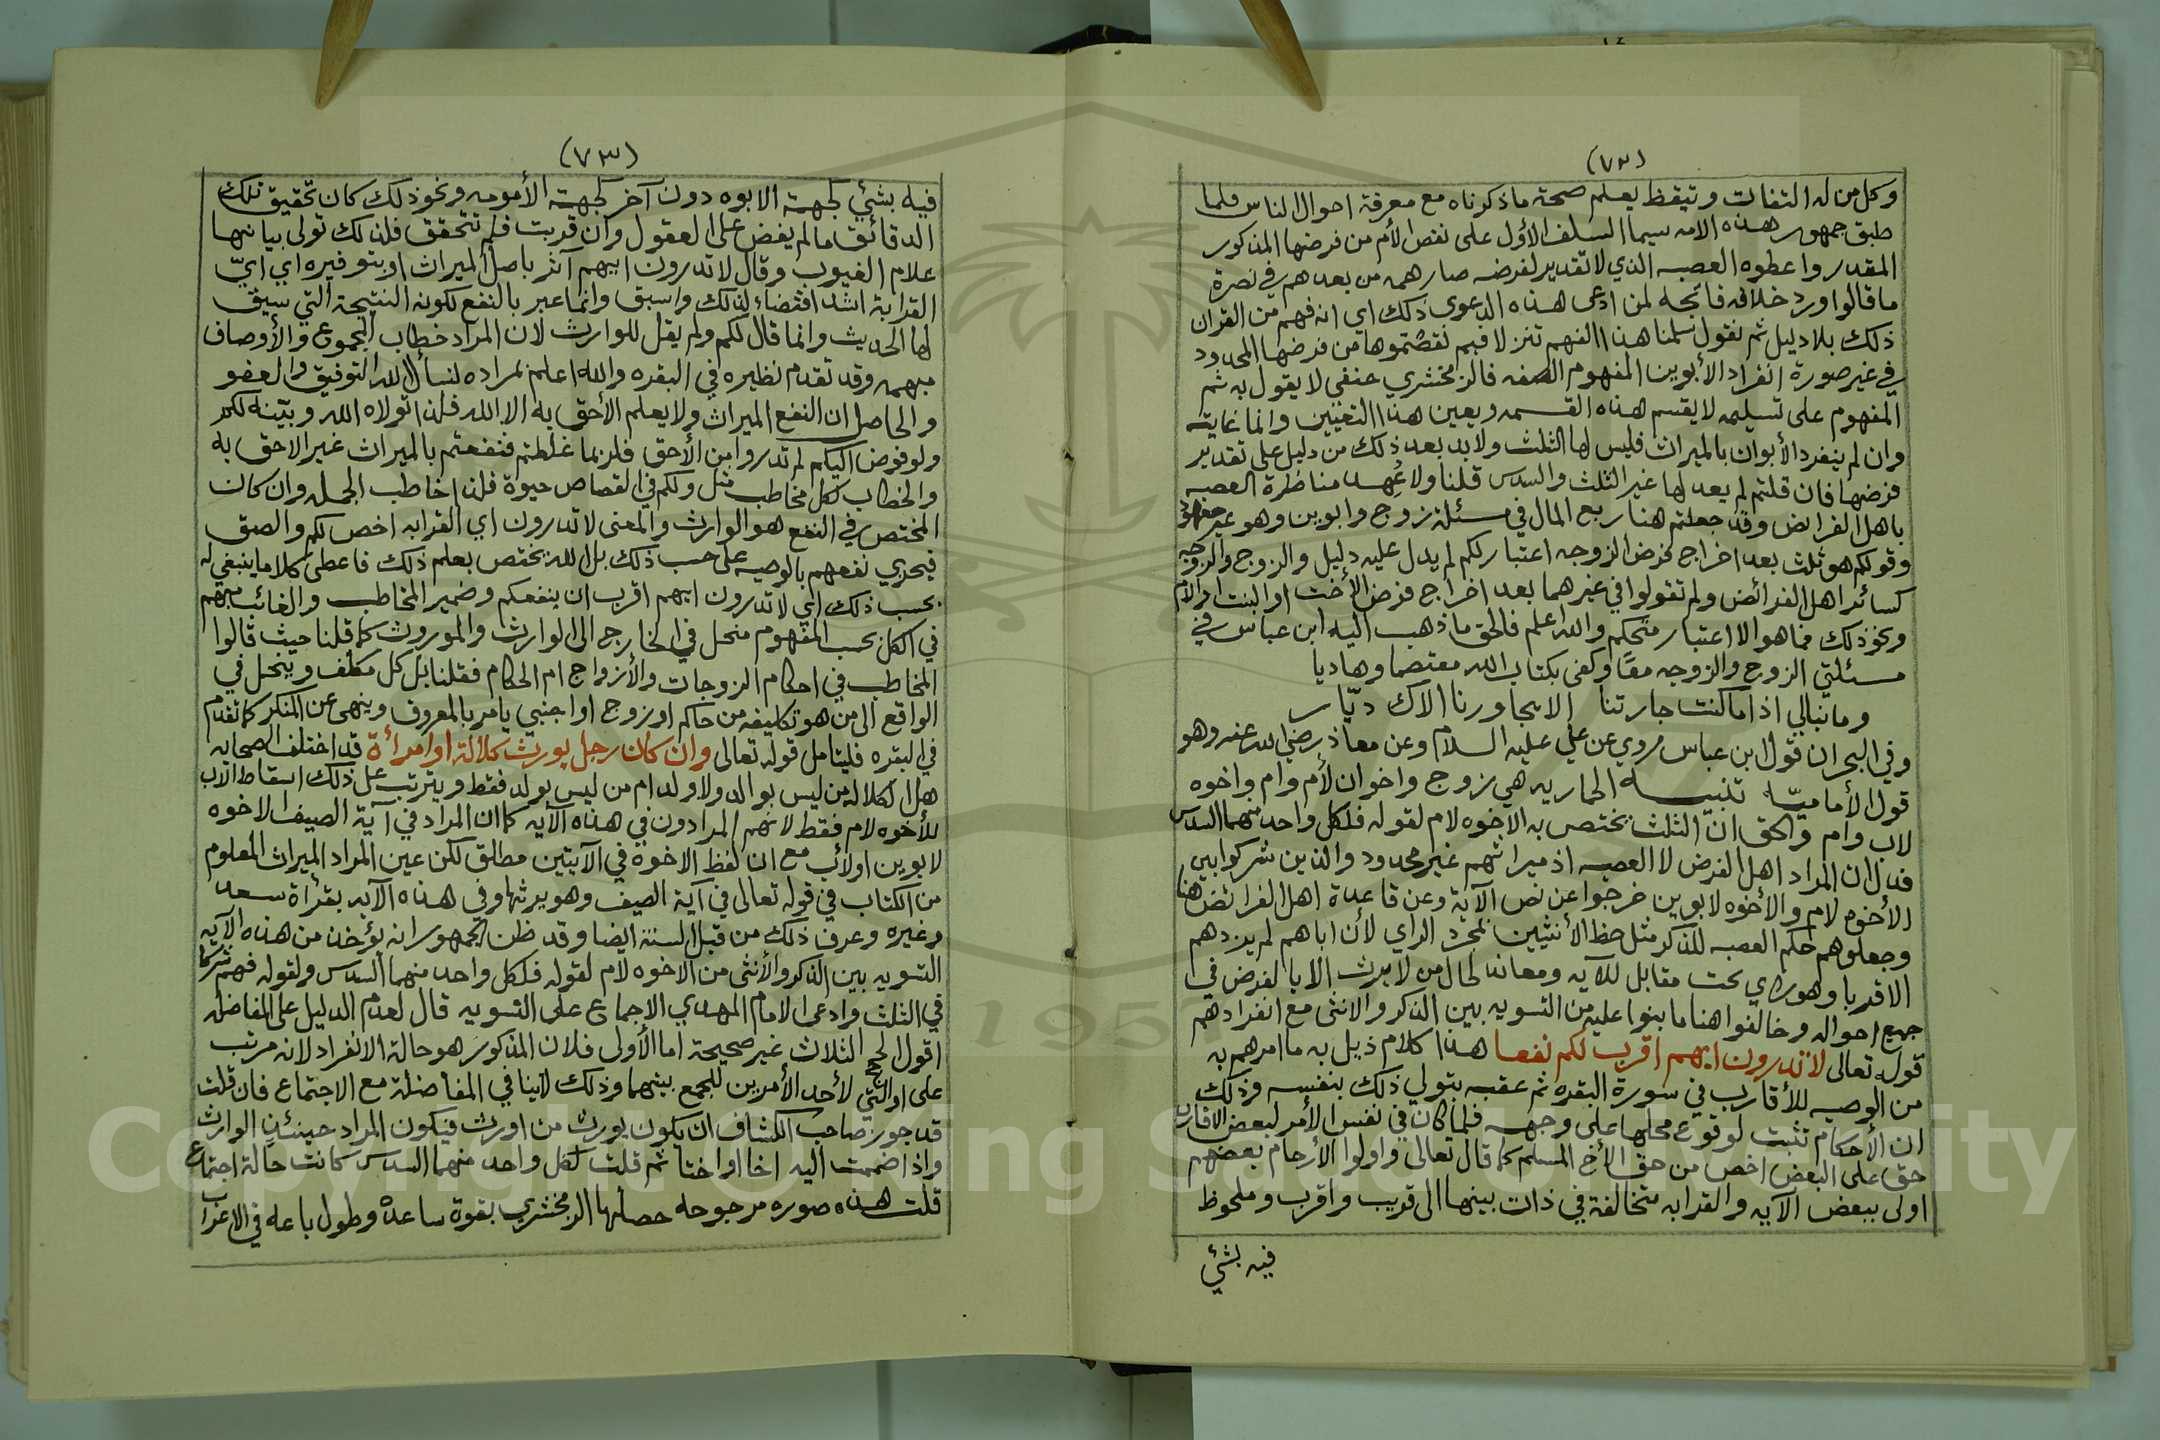 (٧٢)
وكل من له التفات وتيقظ يعلم صحة ما ذكرناه مع معرفة احوال الناس فلما
طبق جمهور هذه الامه سيما السلف الأول على نقص الأم من فرضها المذكور
المقدر واعطوه العصبه الذي لا تقدير لفرضه صار همه من بعدهم في نصرة
ما قالوا ورد خلافه فاتجه لمن ادعى هذه الدعوى ذلك اي انه فهم من القران
ذلك بلا دليل ثم نقول سلمنا هذا الفهم تنزلا فبم نقصتموها من فرضها المحدود
في غير صورة انفراد الأبوين المفهوم الصفه فالزمخشري حنفي لا يقول به ثم
المفهوم على تسليمه لا يقسم هذه القسمه ويعين هذا التعيين وانما غايته
وان لم ينفرد الأبوان بالميراث فليس لها الثلث ولا بد بعد ذلك من دليل على تقدير
فرضها فان قلتم لم يعد لها غير الثلث والسدس قلنا ولا عُهد مناظرة العصبه
باهل الفرائض وقد جعلتم هنا ربع المال في مسئلة زوج وابوين وهو غير معهود
وقولكم هو ثلث بعد اخراج فرض الزوجه اعتبار لكم لم يدل عليه دليل والزوج والزوجه
كسائر اهل الفرائض ولم تقولوا في غيرهما بعد اخراج فرض الأخت او البنت او الأم
ونحو ذلك فما هو الا اعتبار متحكم والله اعلم فالحق ما ذهب اليه ابن عباس في
مسئلتي الزوج والزوجه معًا وكفى بكتاب الله معتصما وهاديا
وما نبالي اذا ما كنت جارتنا الا يجاورنا الاك ديّار
وفي البحر ان قول ابن عباس مروي عن علي عليه السلام وعن معاذ رضي الله عنه وهو
قول الأماميّه تنبيه الحماريه هي زوج واخوان لأم وام واخوه
لاب وام والحق انّ الثلث يختص به الاخوه لام لقوله فلكل واحد منهما السدس
فدل ان المراد اهل الفرض لا العصبه اذ ميراثهم غير محدود والذين شركوا بين
الأخوه لام والأخوه لابوين خرجوا عن نص الآية وعن قاعدة اهل الفرائض هنا
وجعلوهم حكم العصبه للذكر مثل حظ الأنثيين بمجرد الراي لأن اباهم لم يزدهم
الا قربا وهو راي بحت مقابل للآيه ومعاند لحال من لا يرث الا بالفرض في
جميع احواله وخالفوا هنا ما بنوا عليه من التسويه بين الذكر والانثى مع انفرادهم
قوله تعالى لا تدرون ايهم اقرب لكم نفعا هذا كلام ذيل به ما امرهم به
من الوصيه للأقارب في سورة البقره ثم عقبه بتولي ذلك بنفسه وذلك
ان الأحكام تثبت لوقوع محلها على وجهه فلما كان في نفس الأمر لبعض الاقارب
حق على البعض اخص من حق الأخ المسلم كما قال تعالى واولوا الأرحام بعضهم
اولى ببعض الآيه والقرابه متخالفة في ذات بينها الى قريب واقرب وملحوظ
فيه بشئ
(٧٣)
فيه بشئ كجهة الابوه دون آخر كجهة الأمومه ونحو ذلك كان تحقيق تلك
الدقائق ما لم يفض على العقول وان قربت فلم تتحقق فلذلك تولى بيانها
علام الغيوب وقال لا تدرون ايهم آثر باصل الميراث او بتوفيره اي ايّ
القرابة اشد اقتضاء لذلك واسبق وانما عبر بالنفع لكونه النتيجة التي سيق
لها الحديث وانما قال لكم ولم يقل للوارث لان المراد خطاب المجموع والأوصاف
مبهمه وقد تقدم نظيره في البقره والله اعلم بمراده لنسأل الله التوفيق والعفو
والحاصل ان النفع الميراث ولا يعلم الأحق به الا الله فلذا تولاه الله وبيّنه لكم
ولو فوض اليكم لم تدروا من الأحق فلربما غلطتم فنفعتم بالميراث غير الاحق به
والخطاب لكل مخاطب مثل ولكم في القصاص حيوة فلذا خاطب الجمله وان كان
المختص في النفع هو الوارث والمعنى لا تدرون اي القرابه اخص لكم والصق
فيحري نفعهم بالوصيه على حسب ذلك بل الله يختص بعلم ذلك فاعطى كلا ما ينبغي له
بحسب ذلك اي لا تدرون ايهم اقرب ان ينفعكم وضمير المخاطب والغائب مبهم
في الكل بحسب المفهوم منحل في الخارج الى الوارث والموروث كما قلنا حيث قالوا
المخاطب في احكام الزوجات والأزواج ام الحكام فقلنا بل كل مكلف وينحل في
الواقع الى من هو تكليفه من حاكم او زوج او اجنبي يامر بالمعروف وينهى عن المنكر كما تقدم
في البقره فليتامل قوله تعالى وان كان رجل يورث كلالة او امرأة قد اختلف الصحابه
هل الكلاله من ليس بوالد ولا ولد ام من ليس بولد فقط ويترتب على ذلك اسقاط الاب
للأخوه لام فقط لانهم المرادون في هذه الآيه كما ان المراد في آية الصيف الاخوه
لابوين او لأب مع ان لفظ الاخوة في الآيتين مطلق لكن عين المراد الميراث المعلوم
من الكتاب في قوله تعالى في آية الصيف وهو يرثها وفي هذه الآيه بقرأة سعد
وغيره وعرف ذلك من قبل السنة ايضا وقد ظن الجمهور انه يؤخذ من هذه الآيه
التسويه بين الذكر والأنثى من الاخوه لام لقوله فلكل واحد منهما السدس ولقوله فهم شركا
في الثلث وادعى الامام المهدي الاجماع على التسويه قال لعدم الدليل على المفاضله
اقول الحجج الثلاث غير صحيحة اما الأولى فلان المذكور هو حالة الانفراد لانه مرتب
على او التي لأحد الأمرين للجمع بينهما وذلك لا ينافي المفاضلة مع الاجتماع فان قلت
قد جوز صاحب الكشاف ان يكون يورث من اورث فيكون المراد حينئذٍ الوارث
واذا ضممت اليه اخا او اختا ثم قلت لكل واحد منهما السدس كانت حالة اجتماع
قلت هذه صوره مرجوحه حصلها الزمخشري بقوة ساعده وطول باعه في الاعراب
1957
Copyright © King Saud University